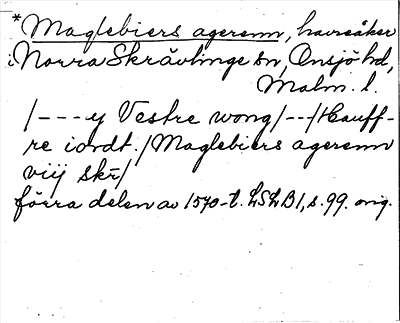 *Maglebiers agerenn, havreåker
i Norra Skrävlinge sn, Onsjö hd,
Malm. l.
/---y Vestre wong/--/Hauff-
re iordt./Maglebiers agerenn
viij skr/
förra delen av 1570-t. LSLB1, s. 99. orig.